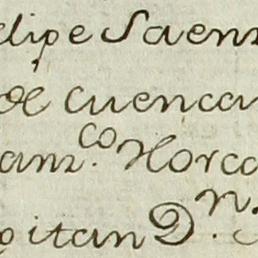 elipe Saenz
de Cuenca
anz.co Horca
pitan Dn.